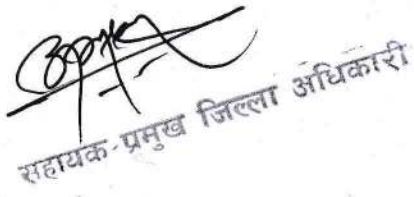 सहायक-प्रमुख जिल्ला अधिकारी